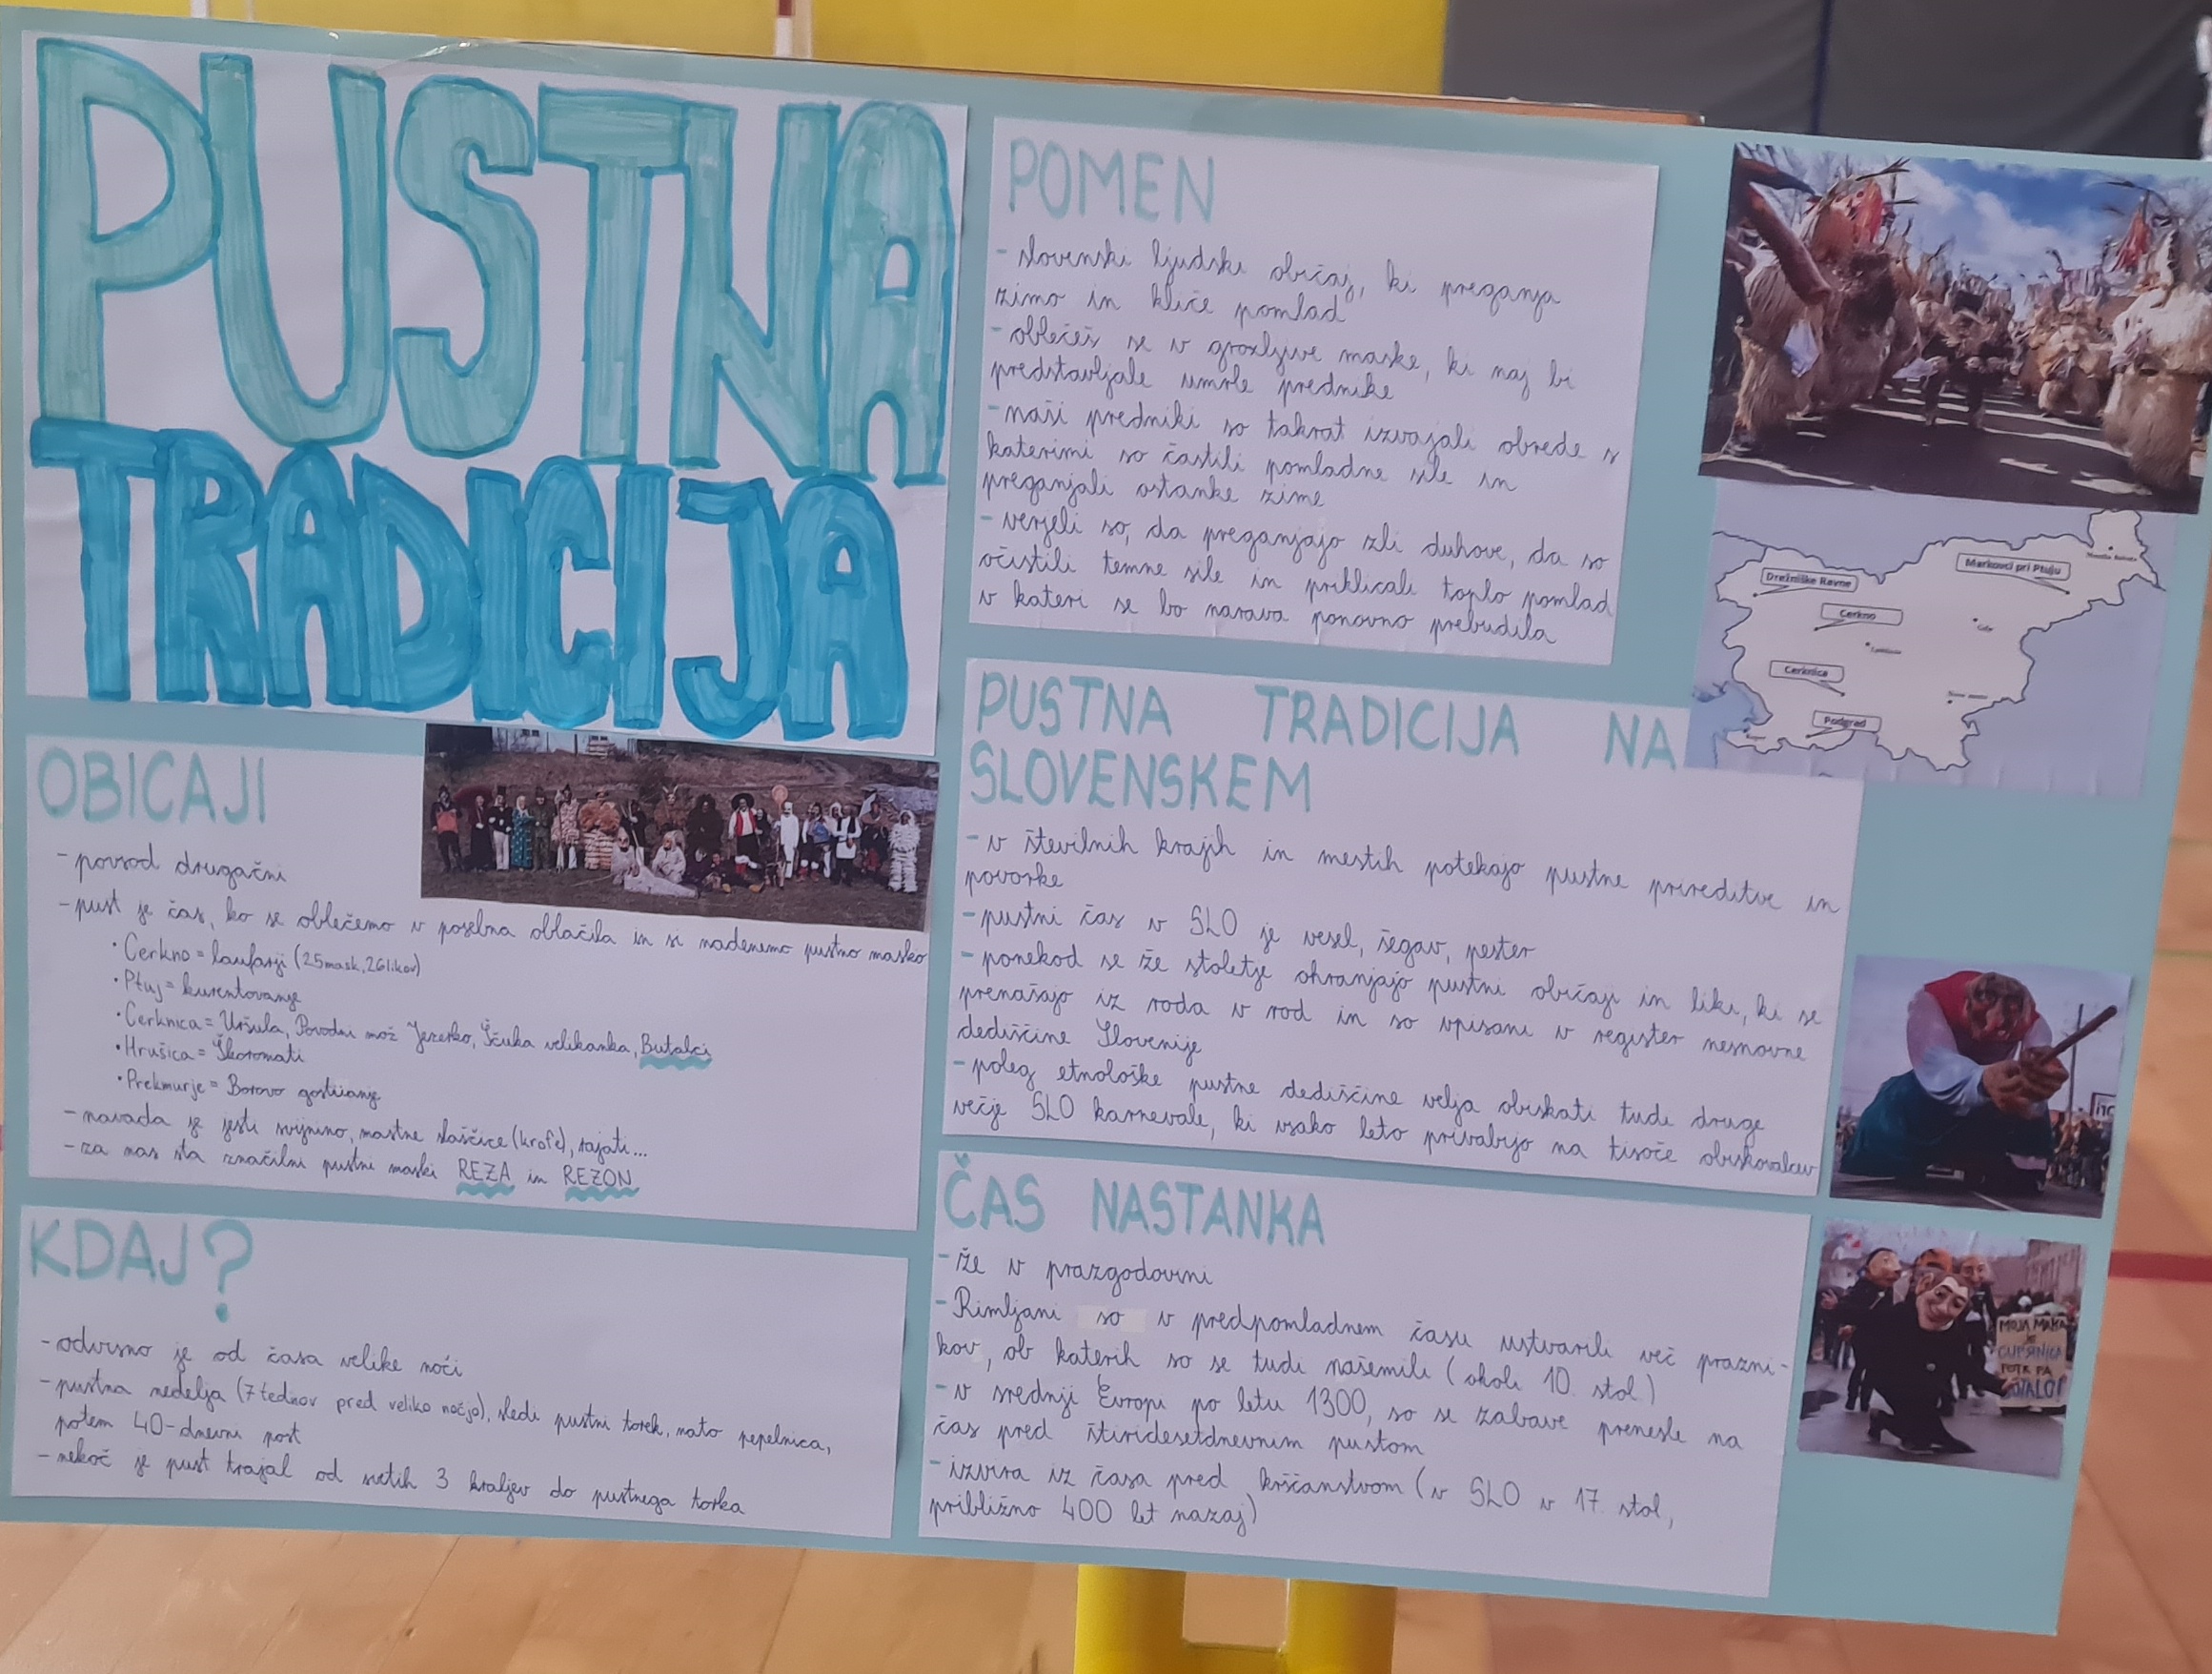 PUSTNA
TRADICIJA
OBIČAJI
- povsod drugačni
- pust je čas, ko se oblečemo v posebna oblačila in si nadenemo pustno masko
• Cerkno = laufarji (25 mask, 26 likov)
• Ptuj = kurentovanje
• Cerknica = Uršula, Povodni mož Jezerko, Ščuka velikanka, Butalci
• Hrušica = Škoromati
• Prekmurje = Borovo gostüvanje
- navada je jesti svinjino, mastne slaščice (krofe), rajati...
- za nas sta značilni pustni maski REZA in REZON
KDAJ?
- odvisno je od časa velike noči
- pustna nedelja (7 tednov pred veliko nočjo), sledi pustni torek, nato pepelnica,
potem 40-dnevni post
- nekoč je pust trajal od svetih 3 kraljev do pustnega torka
POMEN
- slovenski ljudski običaj, ki preganja
zimo in kliče pomlad
- oblečeš se v grozljive maske, ki naj bi
predstavljale umrle prednike
- naši predniki so takrat izvajali obrede s
katerimi so častili pomladne sile in
preganjali ostanke zime
- verjeli so, da preganjajo zli duhove, da so
očistili temne sile in priklicali toplo pomlad
v kateri se bo narava ponovno prebudila
PUSTNA TRADICIJA NA
SLOVENSKEM
- v številnih krajih in mestih potekajo pustne prireditve in
povorke
- pustni čas v SLO je vesel, šegav, pester
- ponekod se že stoletje ohranjajo pustni običaji in liki, ki se
prenašajo iz roda v rod in so vpisani v register nesnovne
dediščine Slovenije
- poleg etnološke pustne dediščine velja obiskati tudi druge
večje SLO karnevale, ki vsako leto privabijo na tisoče obiskovalcev
ČAS NASTANKA
- že v prazgodovini
- Rimljani so v predpomladnem času ustvarili več prazni-
kov, ob katerih so se tudi našemili (okoli 10. stol.)
- v srednji Evropi po letu 1300, so se zabave prenesle na
čas pred štiridesetdnevnim pustom
- izvira iz časa pred krščanstvom (v SLO v 17. stol,
približno 400 let nazaj)
Drežniške Ravne
Markovci pri Ptuju
Murska Sobota
Cerkno
Celje
Ljubljana
Cerknica
Novo mesto
Podgrad
Koper
MOJA MAKA
JE
POTK PA